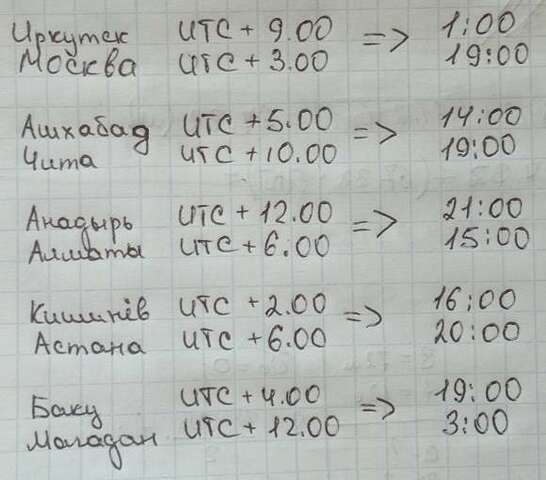 Иркутск UTC + 9.00 => 1:00
Москва UTC + 3.00 19:00
Ашхабад UTC + 5.00 => 14:00
Чита UTC + 10.00 19:00
Анадырь UTC + 12.00 => 21:00
Алматы UTC + 6.00 15:00
Кишинёв UTC + 2.00 => 16:00
Астана UTC + 6.00 20:00
Баку UTC + 4.00 => 19:00
Магадан UTC + 12.00 3:00